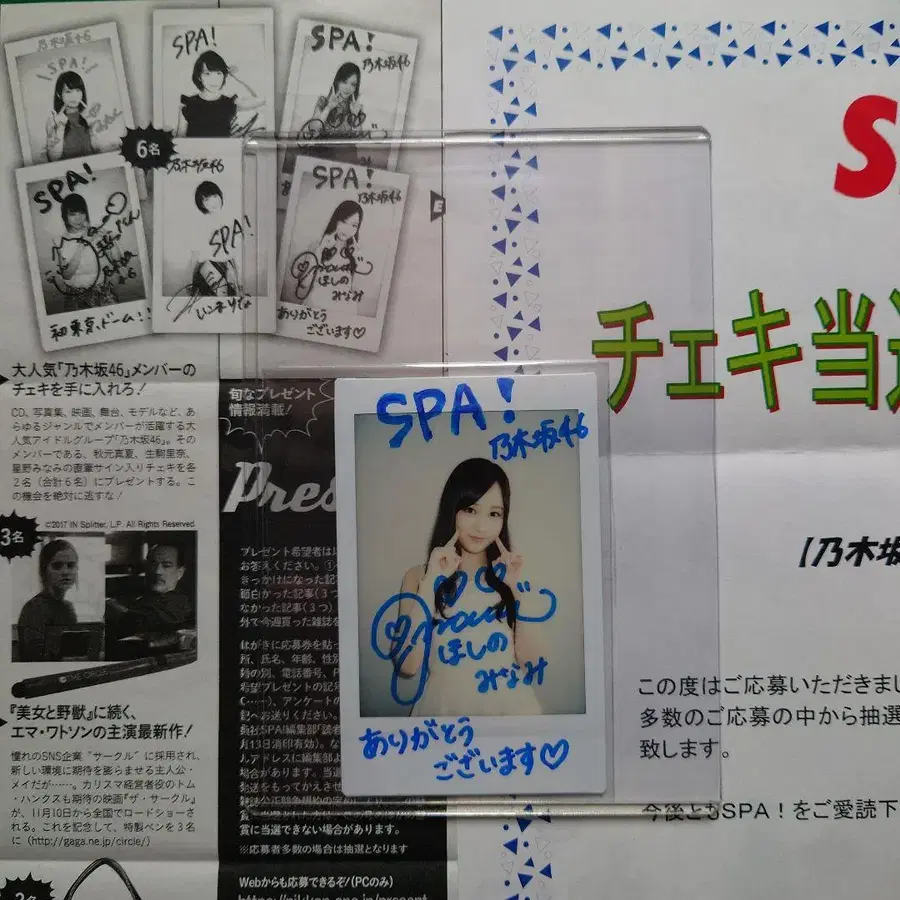 乃木坂46
SPA!
SPA!
SPA!
乃木坂46
6名
SPA!
初東京ドーム!!
乃木坂46
SPA!
SPA!
乃木坂46
ほしの
みなみ
ありがとう
ございます♡
E
大人気『乃木坂46』メンバーの
チェキを手に入れろ!
CD、写真集、映画、舞台、モデルなど、あ
らゆるジャンルでメンバーが活躍する大
人気アイドルグループ「乃木坂46」。その
メンバーである、秋元真夏、生駒里奈、
星野みなみの直筆サイン入りチェキを各
2名(合計6名)にプレゼントする。こ
の機会を絶対に逃すな!
©2017 IN Splitter, L.P. All Rights Reserved.
3名
『美女と野獣』に続く、
エマ・ワトソンの主演最新作!
憧れのSNS企業“サークル”に採用され、
新しい環境に期待を膨らませる主人公・
メイだが……。カリスマ経営者役のトム
・ハンクスも期待の映画『ザ・サークル』
が、11月10日から全国でロードショーさ
れる。これを記念して、特製ペンを3名
に(http://gaga.ne.jp/circle/)
旬なプレゼント
情報満載!
Pres
プレゼント希望者は
お答えください。①
きっかけになった記
面白かった記事(3つ
なかった記事(3つ)
外で今週買った雑誌を
はがきに応募券を貼っ
所、氏名、年齢、性別
電話番号、
希望プレゼントの記号
アンケートの
記へお送りください。
SPA!編集部「読者
月13日消印有効)。
ルアドレスに編集部よ
場合があります。当選
発送をもってかえさせ
賞に当選できない場合があります。
※応募者多数の場合は抽選となります
Webからも応募できるぞ!(PCのみ)
SPA!
乃木坂46
ほしの
みなみ
ありがとう
ございます♡
S
チェキ当選
【乃木坂
この度はご応募いただきまし
多数のご応募の中から抽選
致します。
今後ともSPA!をご愛読下